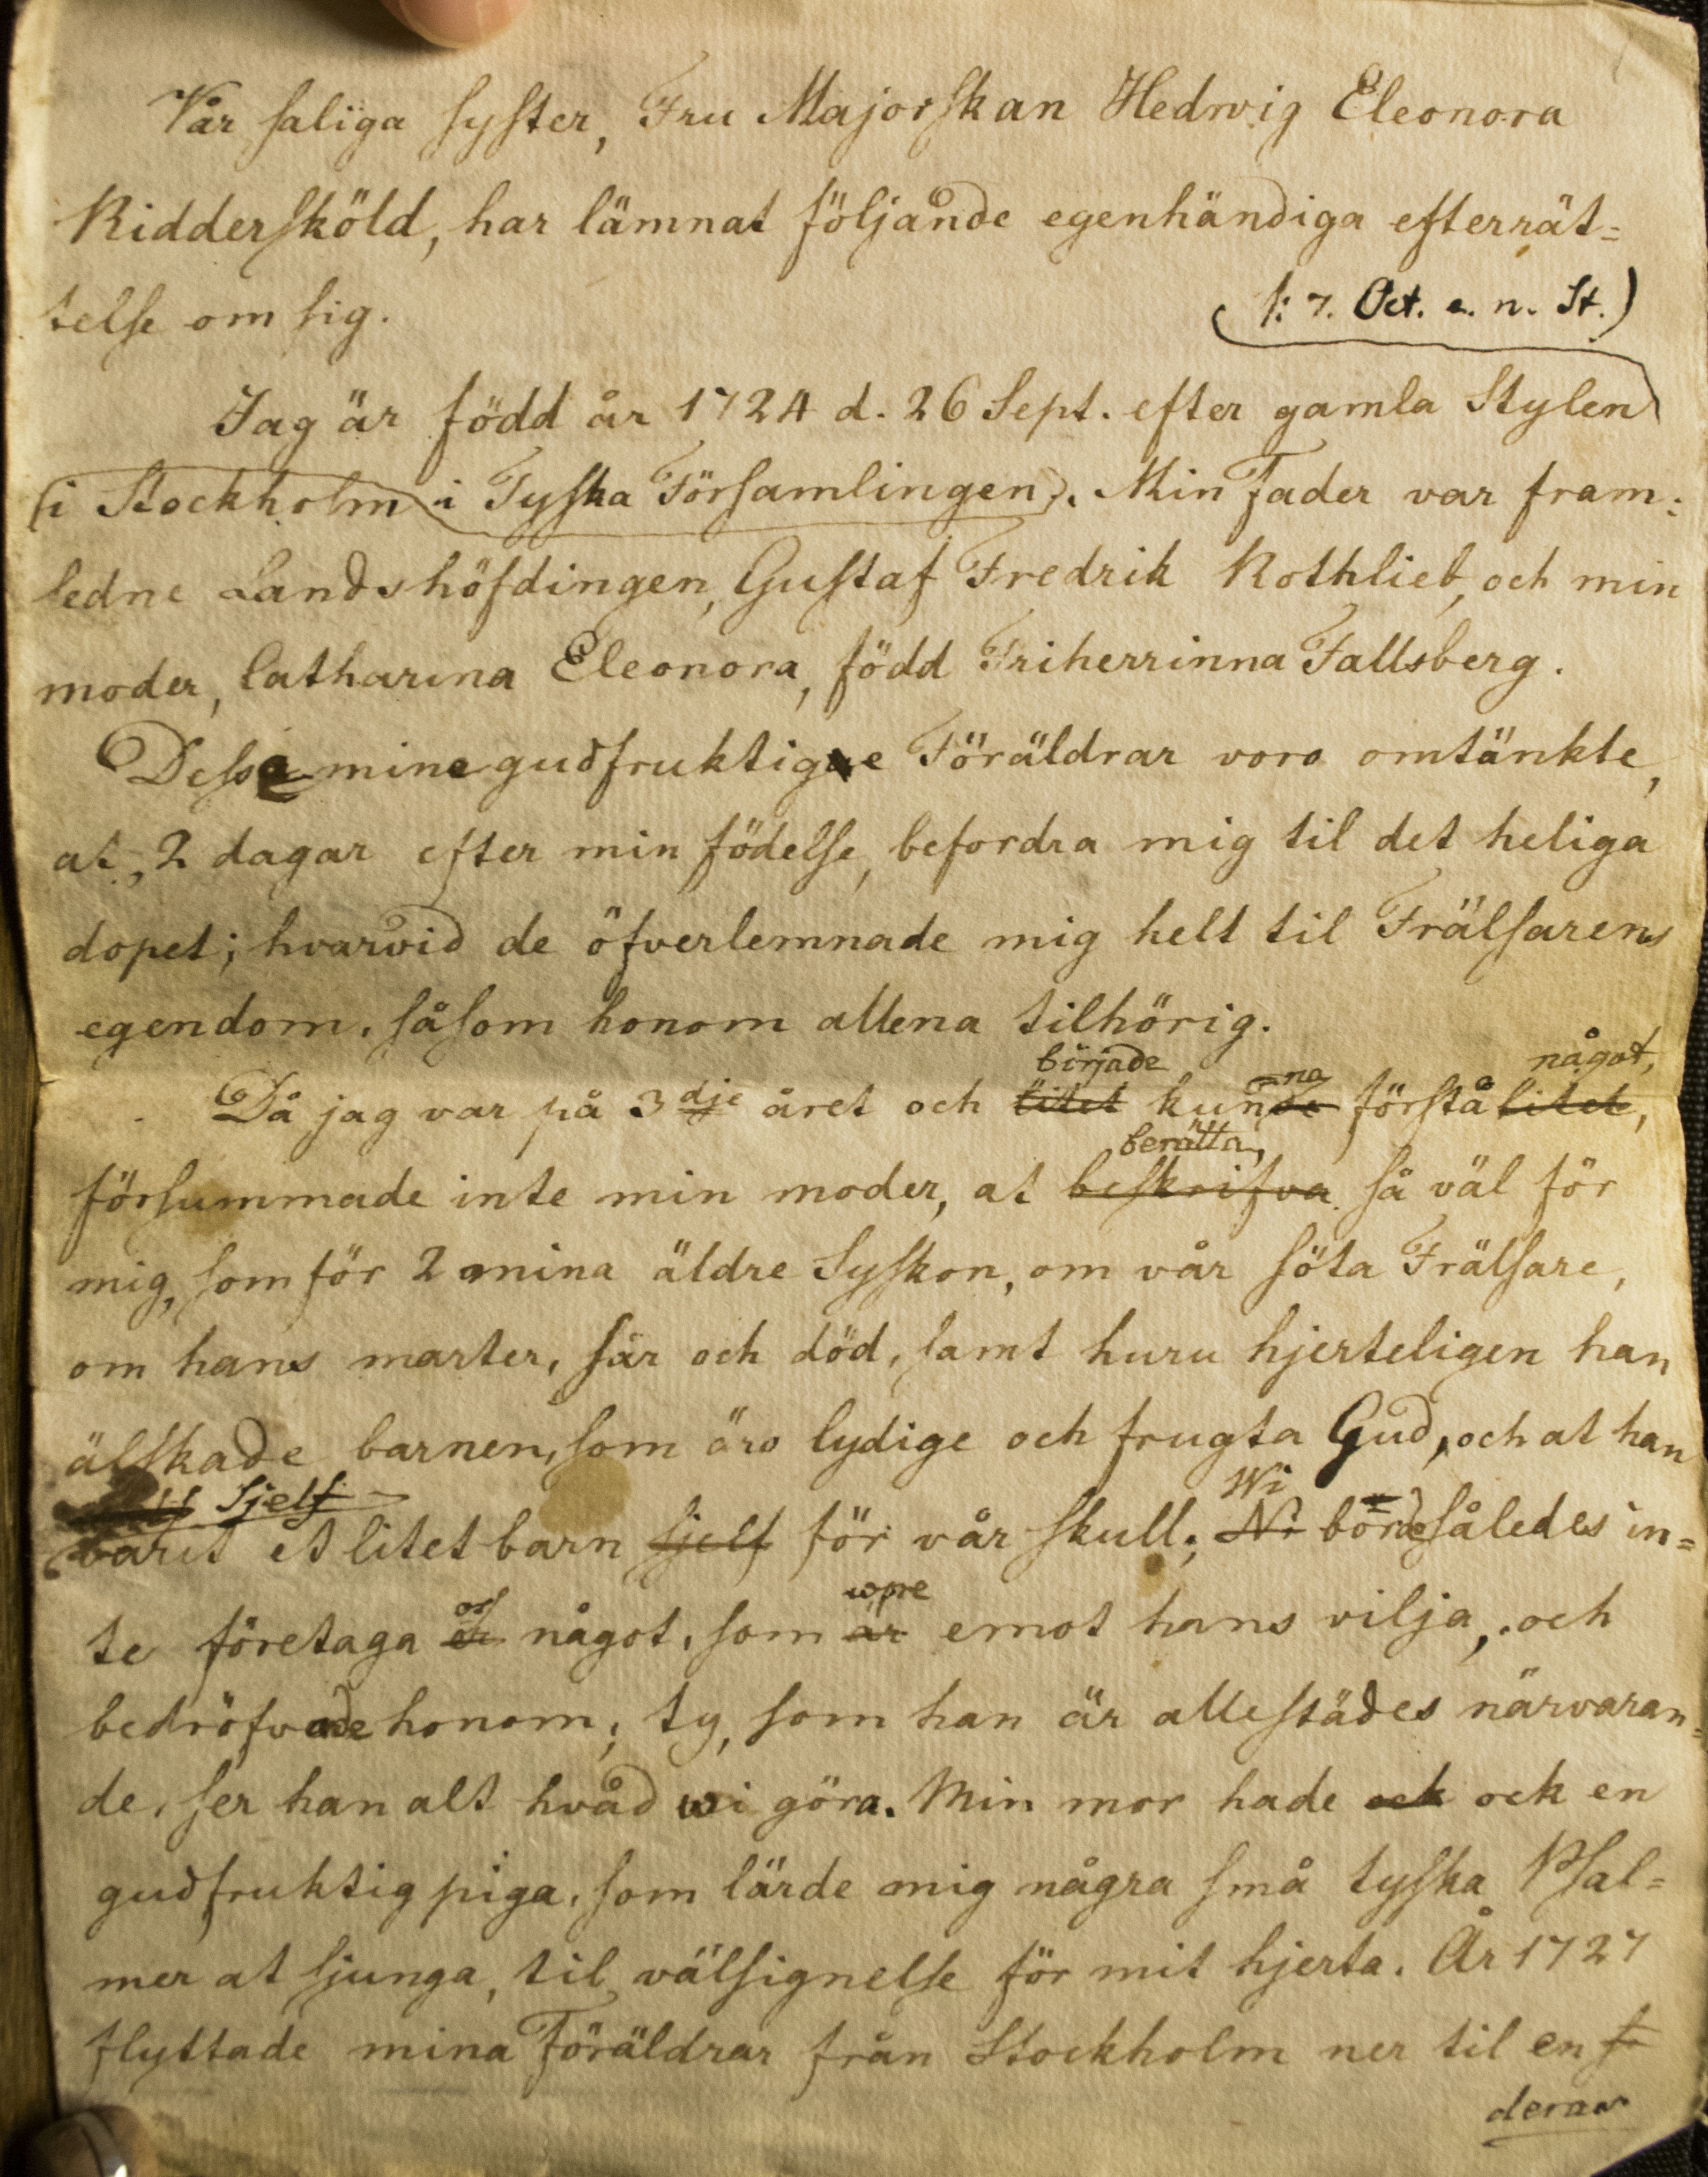 Vår saliga syster, Fru Majorskan Hedwig Eleonora
Riddersköld, har lämnat följande egenhändiga efterrät=
telse om sig.
(/: 7. Oct. e. n. St.)
Jag är född år 1724 d. 26 Sept. efter gamla Stylen
i Stockholm i Tyska Församlingen. Min Fader var fram=
ledne Landshöfdingen, Gustaf Fredrik Rothlieb, och min
moder, Catharina Eleonora, född Friherrinna Fallsberg.
Desse mine gudfruktige Föräldrar voro omtänkte,
at, 2 dagar efter min födelse, befordra mig til det heliga
dopet; hvarvid de öfverlemnade mig helt til Frälsarens
egendom, såsom honom allena tilhörig.
började na något,
Då jag var på 3dje året och litet kunde förstå litet,
berätta,
försummade inte min moder, at beskrifva så väl för
mig, som för 2 mina äldre Syskon, om vår söta Frälsare,
om hans marter, sår och död, samt huru hjerteligen han
älskade barnen, som äro lydige och frugta Gud, och at han
sjelf Wi
varit et litet barn sjelf för vår skull; Ni börde således in=
os wore
te företaga er något, som är emot hans vilja, och
bedröfvade honom; ty, som han är allestädes närvaran=
de, ser han alt hvad wi göra. Min mor hade ock ock en
gudfruktig piga, som lärde mig några små tyska Psal=
mer at sjunga, til välsignelse för mit hjerta. År 1727
flyttade mina Föräldrar från Stockholm ner til en
deras